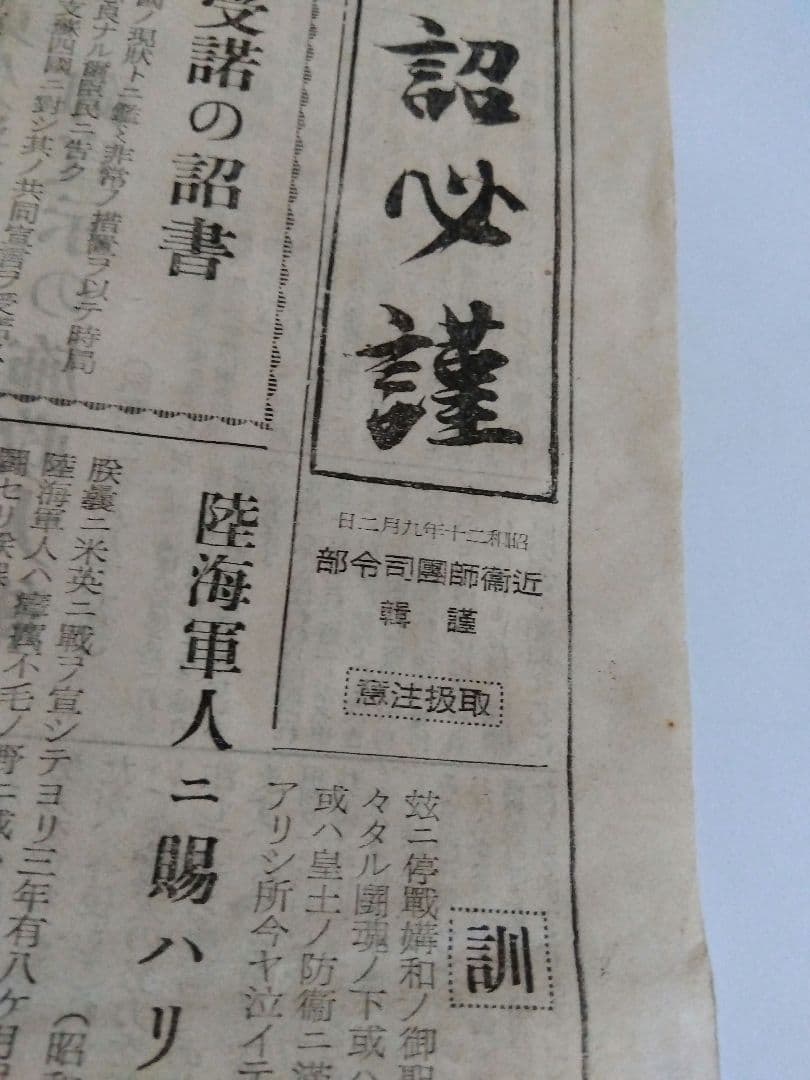 詔必謹
昭和二十年九月二日
近衞師團司令部
謹輯
取扱注意
訓
玆ニ停戰媾和ノ御
々タル鬪魂ノ下或ハ
或ハ皇土ノ防衞ニ
アリシ所今ヤ泣イテ
受諾の詔書
ノ現狀トニ鑑ミ非常ノ措置ヲ以テ時局
良ナル爾臣民ニ告ク
支蘇四國ニ對シ其ノ共同宣言ヲ受諾
陸海軍人ニ賜ハリ
(昭和
朕曩ニ米英ニ戰ヲ宣シテヨリ三年有八ケ月
陸海軍人ハ瘴癘不毛ノ野ニ或
鬪セリ朕深